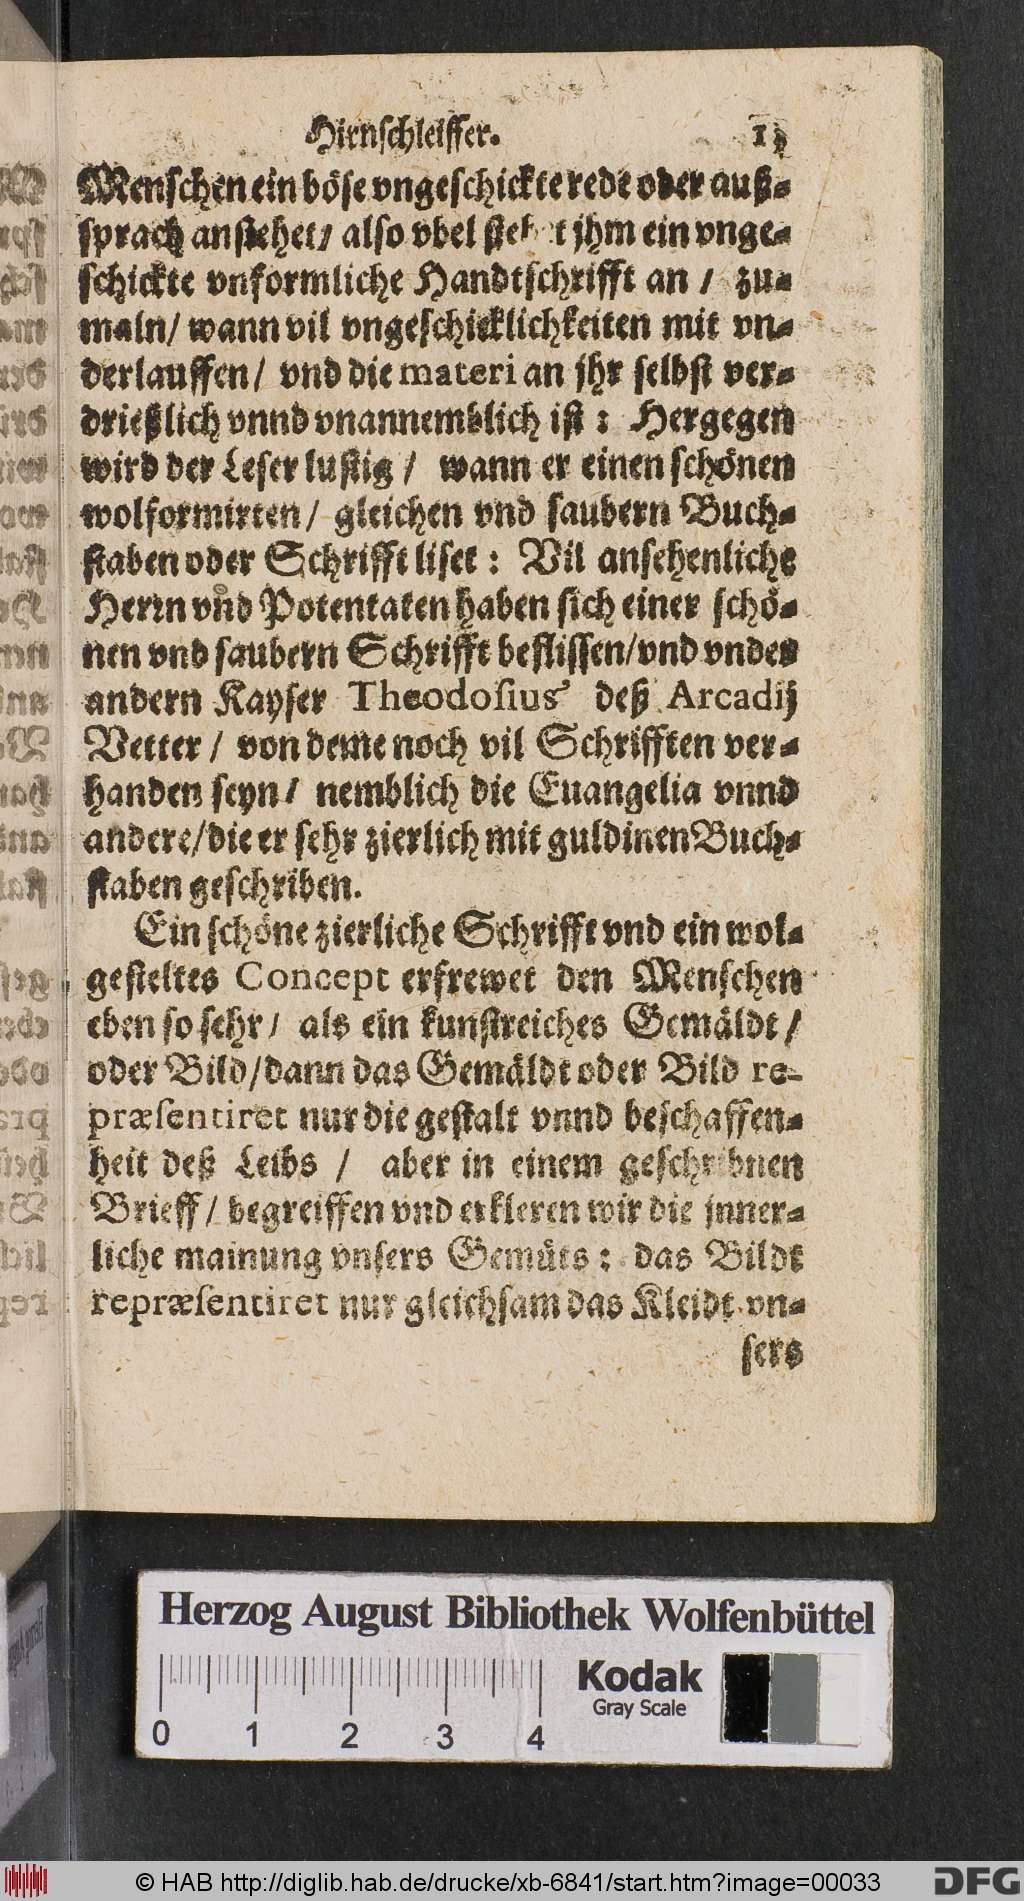 Hirnschleiffer.
Menschen ein böse vngeschickte rede oder auß-
sprach anstehet/ also vbel stehet jhm ein vnge-
schickte vnformliche Handtschrifft an / zu-
maln/ wann vil vngeschicklichkeiten mit vn-
derlauffen/ vnd die materi an jhr selbst ver-
drießlich vnnd vnannemblich ist : Hergegen
wird der Leser lustig / wann er einen schönen
wolformirten/ gleichen vnd saubern Buch-
staben oder Schrifft liset : Vil ansehenliche
Herrn vnd Potentaten haben sich einer schö-
nen vnd saubern Schrifft beflissen/vnd vnder
andern Kayser Theodosius deß Arcadij
Vetter / von deme noch vil Schrifften ver-
handen seyn / nemblich die Euangelia vnnd
andere/die er sehr zierlich mit guldinen Buch-
staben geschriben.
Ein schöne zierliche Schrifft vnd ein wol-
gesteltes Concept erfrewet den Menschen
eben so sehr / als ein kunstreiches Gemäldt /
oder Bild/dann das Gemäldt oder Bild re-
præsentiret nur die gestalt vnnd beschaffen-
heit deß Leibs / aber in einem geschribnen
Brieff / begreiffen vnd erkleren wir die jnner-
liche mainung vnsers Gemüts : das Bildt
repræsentiret nur gleichsam das Kleidt vn-
sers
Herzog August Bibliothek Wolfenbüttel
Kodak
Gray Scale
0 1 2 3 4
© HAB http://diglib.hab.de/drucke/xb-6841/start.htm?image=00033
DFG